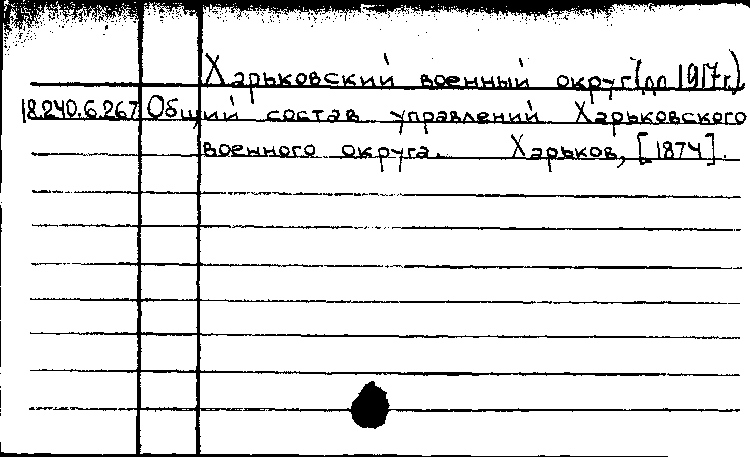 Харьковский военный округ (до 1917 г.)
18.240.6.267 Общий состав управлений Харьковского
военного округа. Харьков, [1874].